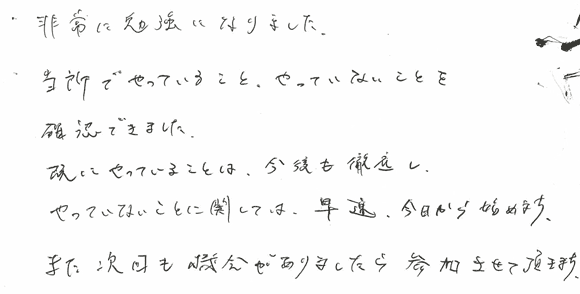 ・非常に勉強になりました。
・当所でやっていること、やっていないことを
確認できました。
既にやっていることは、今後も徹底し、
やっていないことに関しては、早速、今日から始めます。
また次回も機会がありましたら参加させて頂きます。